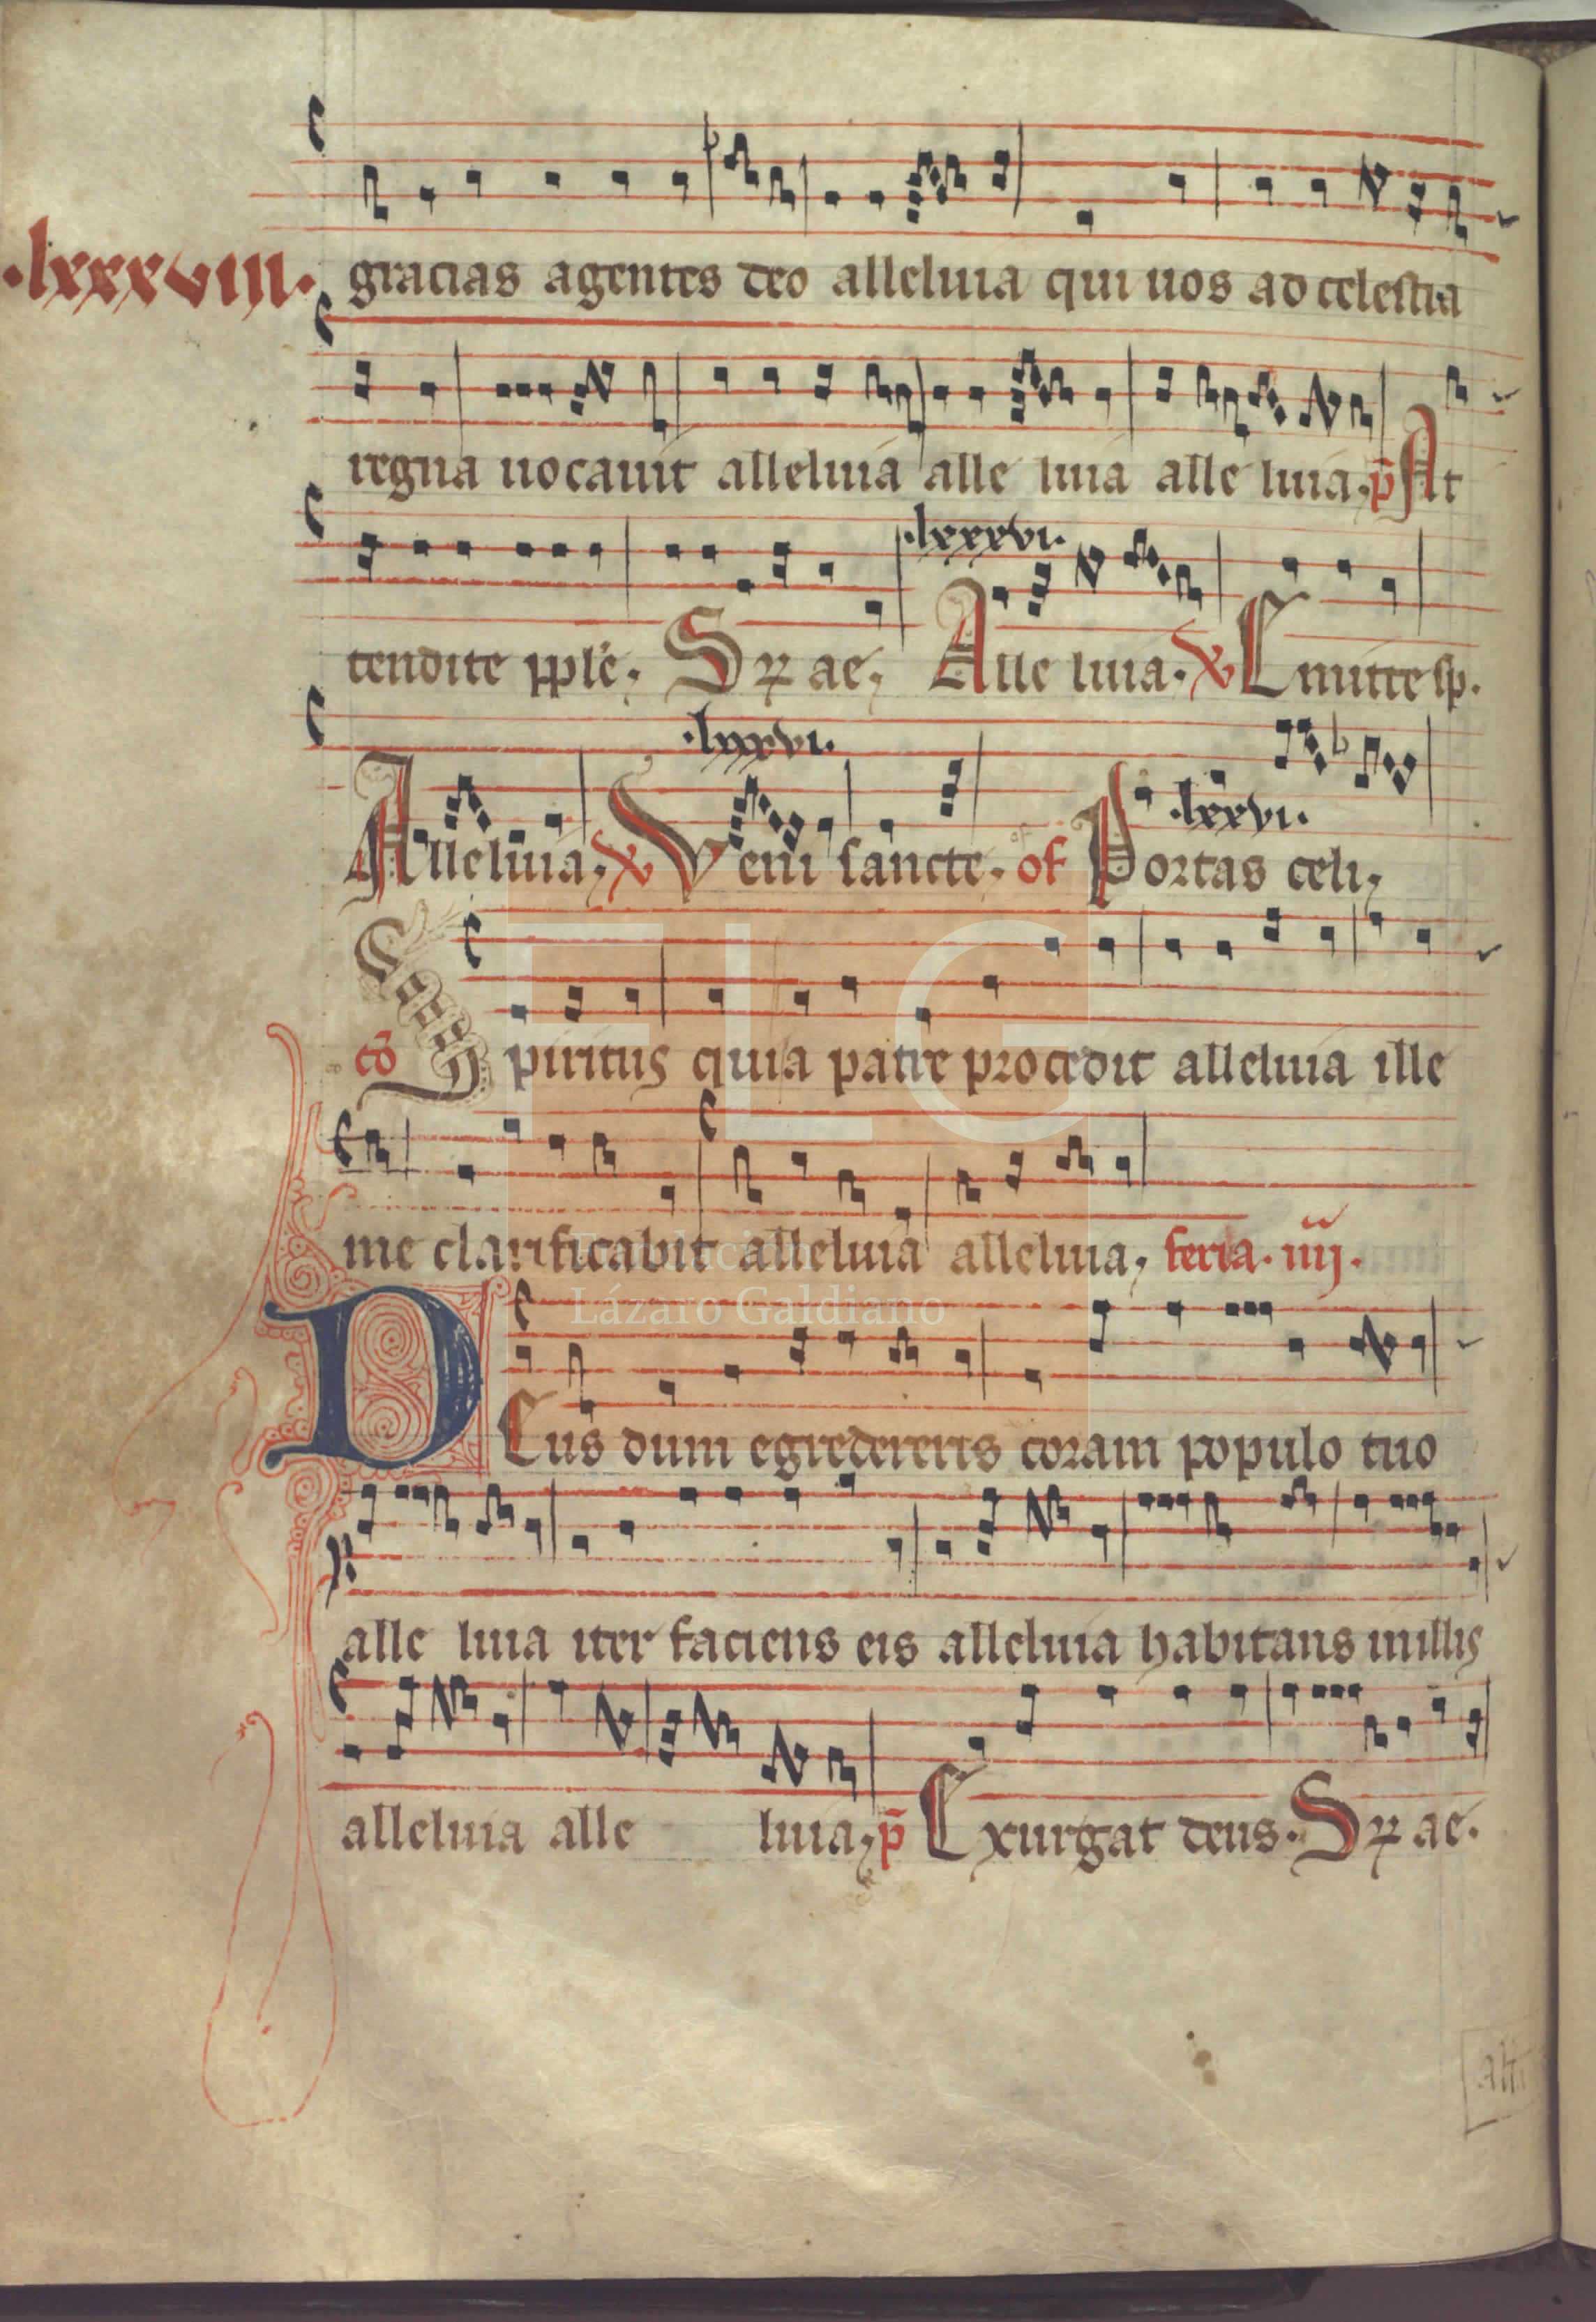 .lxxxviii.
gracias agentes deo alleluia qui uos ad celestia
regna uocauit alleluia alle luia alle luia. p̄ At
.lxxxvi.
tendite pple. Sꝛ ae. Alle luia. ℣ Emitte sp.
.lxxxvi.
.lxxvi.
Alleluia. ℣ Veni sancte. of Portas celi.
cō Spiritus qui a patre procedit alleluia ille
me clarificabit alleluia alleluia. feria. iiij.
FLG
Fundación
Lázaro Galdiano
DEus dum egredereris coram populo tuo
alle luia iter faciens eis alleluia habitans in illis
alleluia alle luia. p̄ Exurgat deus. Sꝛ ae.